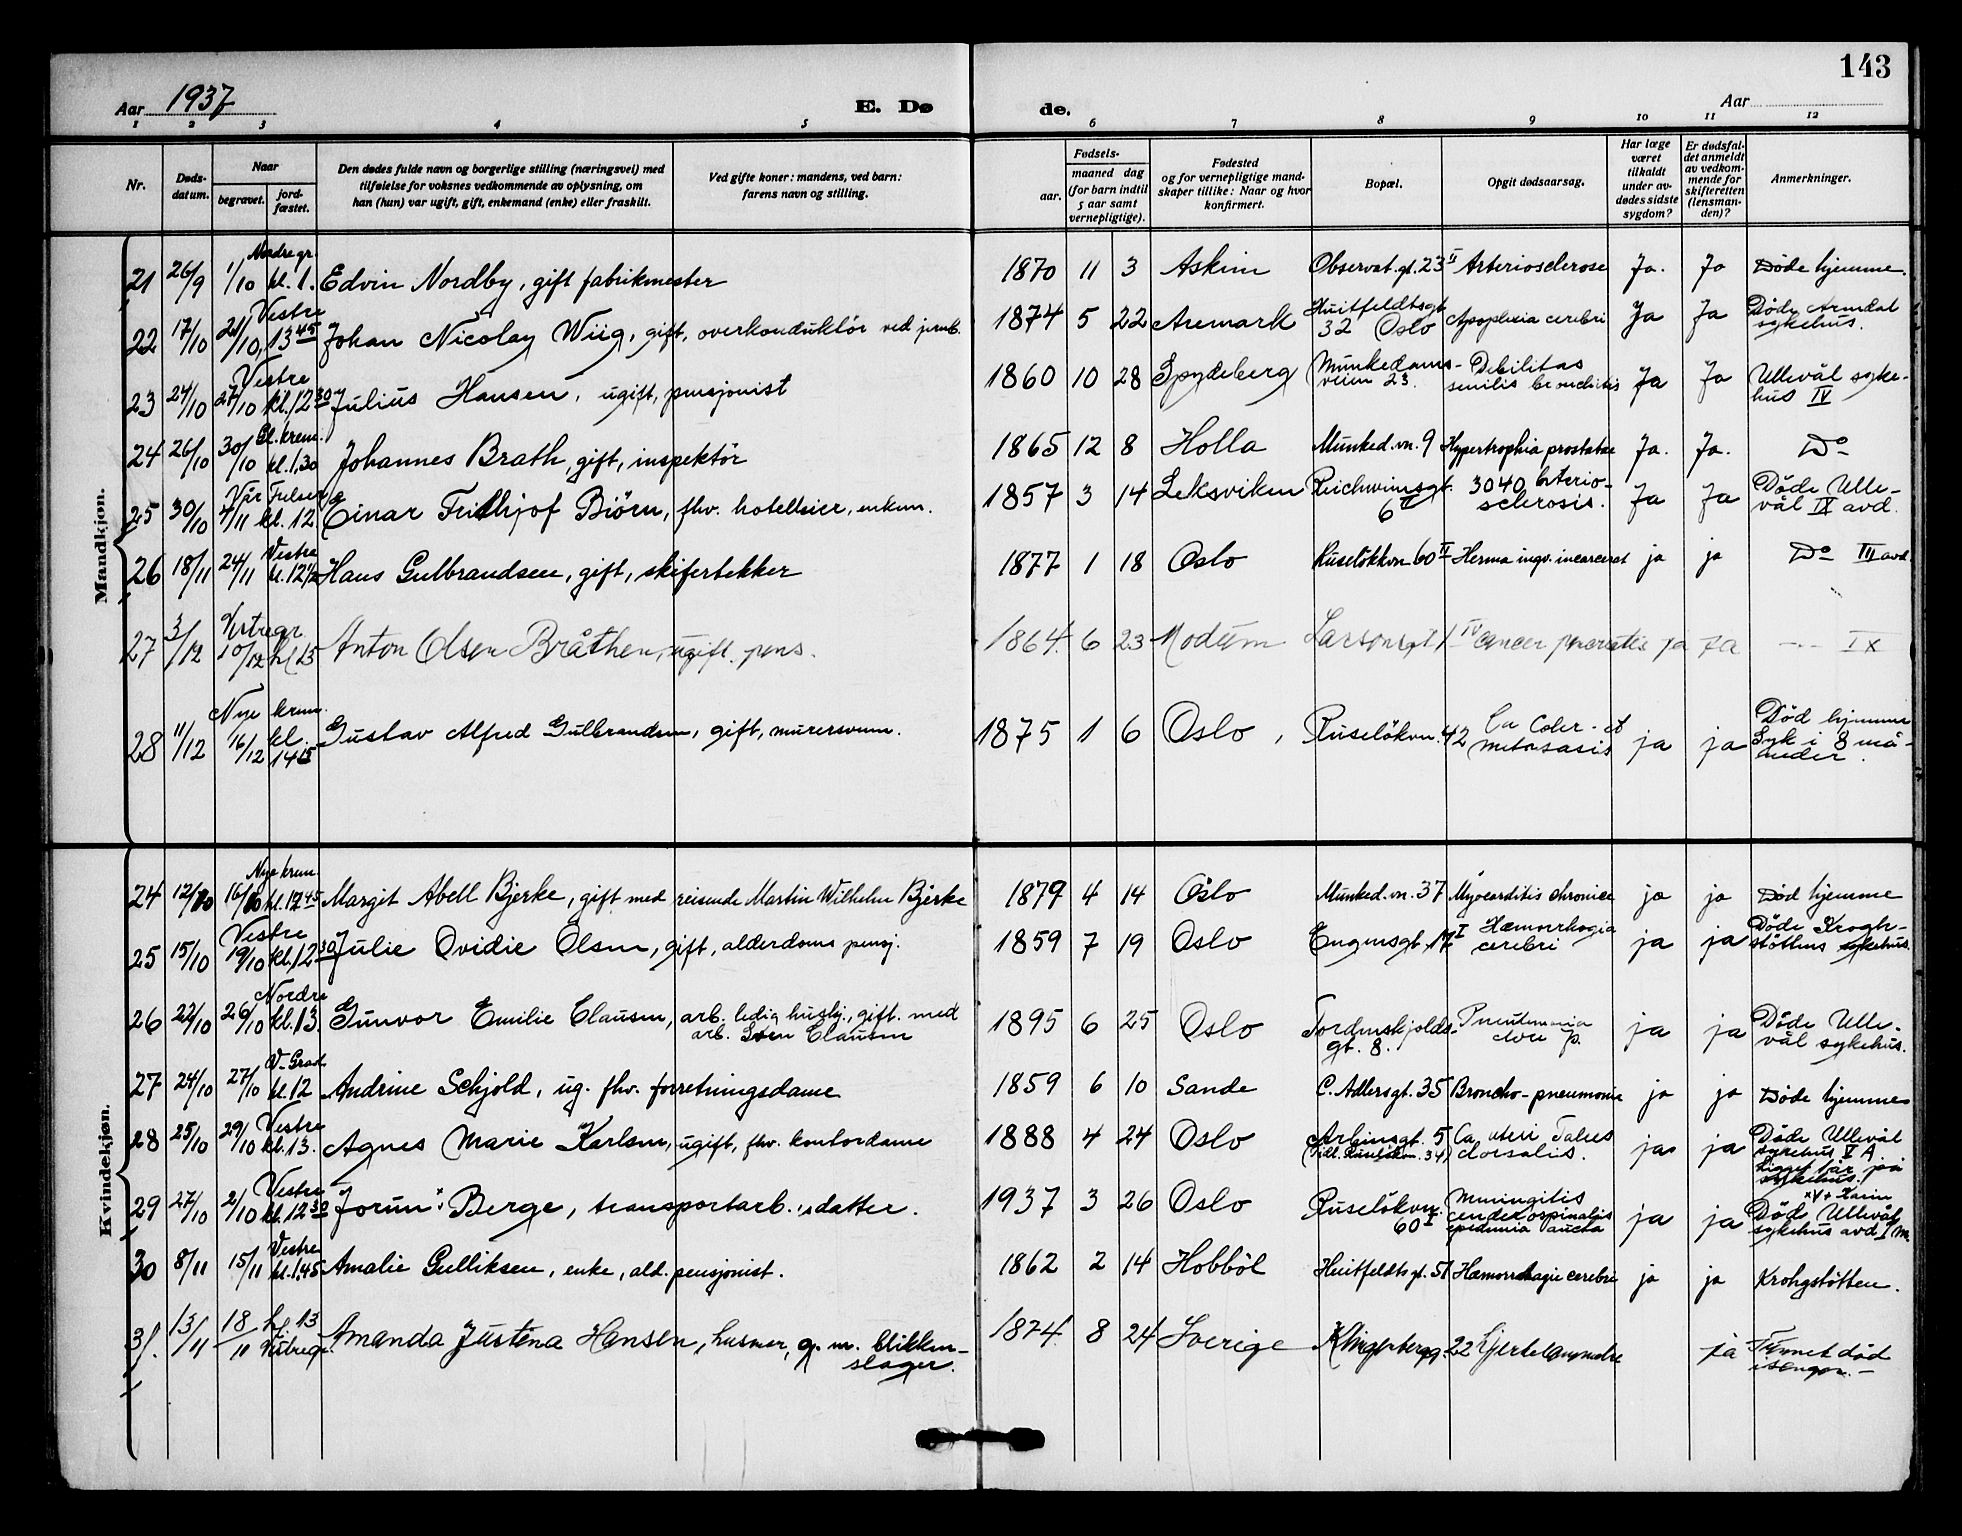 143
Aar 1937
E. Døde.
Aar
1 2 3 4 5 6 7 8 9 10 11 12
Nr.
Døds-
datum.
Naar
begravet.
jord-
fæstet.
Den dødes fulde navn og borgerlige stilling (næringsvei) med
tilføielse for voksnes vedkommende av oplysning, om
han (hun) var ugift, gift, enkemand (enke) eller fraskilt.
Ved gifte koner: mandens, ved barn:
farens navn og stilling.
Fødsels-
aar.
maaned dag
(for barn indtil
5 aar samt
vernepligtige).
Fødested
og for vernepligtige mand-
skaper tillike: Naar og hvor
konfirmert.
Bopæl.
Opgit dødsaarsag.
Har læge
været
tilkaldt
under av-
dødes sidste
sygdom?
Er dødsfal-
det anmeldt
av vedkom-
mende for
skifteretten
(lensman-
den)?
Anmerkninger.
Mandkjøn.
Nordre gr.
21 26/9 1/10 kl. 1. Edvin Nordby, gift fabrikmester 1870 11 3 Askim Observat.gt. 23 II Arteriosclerose Ja. Ja Døde hjemme.
Vestre
22 17/10 21/10 13 45 Johan Nicolay Wiig, gift, overkonduktör ved jernb. 1874 5 22 Aremark Huitfeldtsgt. 32 Oslo Apoplexia cerebri Ja Ja Döde Arendal sykehus.
Vestre
23 24/10 27/10 kl. 12 30 Julius Hansen, ugift, pensjonist 1860 10 28 Spydeberg Munkedamsveien 23. Debilitas senilis bronchitis Ja Ja Ullevål sykehus IV
Gl. krem.
24 26/10 30/10 kl. 1.30 Johannes Brath, gift, inspektör 1865 12 8 Holla Munked.vn. 9 Hypertrophia prostatae Ja. Ja. Do
Vår Frelsers g.
25 30/10 4/11 kl. 12. Einar Fridthjof Biörn, fhv. hotelleier, enkem. 1857 3 14 Leksviken Reichweinsgt. 6 3040 Arteriosclerosis. Ja Ja Döde Ullevål IX avd.
Vestre
26 18/11 24/11 kl. 12½ Hans Gulbrandsen, gift, skifertekker 1877 1 18 Oslo Ruselökkvn 60 IV Hernia ingv. incarcerat ja ja Do III avd.
Vestre gr.
27 3/12 10/12 kl 15 Anton Olsen Bråthen, ugift. pens. 1864. 6 23 Modum Larsensgt 1 IV cancer pancreatis ja ja -"- IX
Nye krem.
28 11/12 16/12 kl. 1415 Gustav Alfred Gulbrandsen, gift, murersvenn. 1875 1 6 Oslo, Ruselökvn. 42 Ca Coler. et metastasis ja ja Död hjemme Syk i 8 måneder.
Kvindekjøn.
Nye krem.
24 12/10 16/10 kl. 12 45 Margit Abell Bjerke, gift med reisende Martin Wilhelm Bjerke 1879 4 14 Oslo Munked.vn. 37 Myocarditis chronica ja ja Död hjemme
Vestre
25 15/10 19/10 kl. 12 30 Julie Ovidie Olsen, gift, alderdoms pensj. 1859 7 19 Oslo Engensgt. 17 I Hæmorrhagia cerebri ja ja Döde Kroghstöthus sykehus.
Nordre
26 22/10 26/10 kl. 13. Gunvor Emilie Clausen, arb. ledig hushj., gift. med
arb. Sören Clausen 1895 6 25 Oslo Tordenskjolds gt. 8. Pneumonia ja ja Döde Ullevål sykehus.
V. Grad.
27 24/10 27/10 kl. 12 Andrine Schjold, ug. fhv. forretningsdame 1859 6 10 Sande C. Adlersgt. 35 Broncho-pneumonie ja ja Døde hjemme
Vestre
28 25/10 29/10 kl. 13. Agnes Marie Karlsen, ugift, fhv. kontordame 1888 4 24 Oslo Arbinsgt. 5 (tidl. Ruselökvn. 34) Ca uteri Tabes dorsalis. ja ja Döde Ullevål sykehus V A
Ligget 1 år på sykehus.)
Vestre
29 27/10 2/10 kl. 12 30 Jorun x Berge, transportarb.'s datter. 1937 3 26 Oslo Ruselökvn. 60 I Meningitis epidemia ja ja x)+ Karin
Döde Ullevål sykehus avd I m.
Vestre
30 8/11 15/11 kl. 1.45 Amalie Gulliksen, enke, ald. pensjonist. 1862 2 14 Hobböl Huitfeldts gt. 51 Hæmorrhagie cerebri ja ja Krohgstötten.
31. 13/11 18/11 kl. 13 Vestre gr. Amanda Justina Hansen, husmor, g. m. blikken-
slager. 1874. 8 24 Sverige Klingenbergg. 22 Hjertelammelse ja Funnet död
i sengen. -